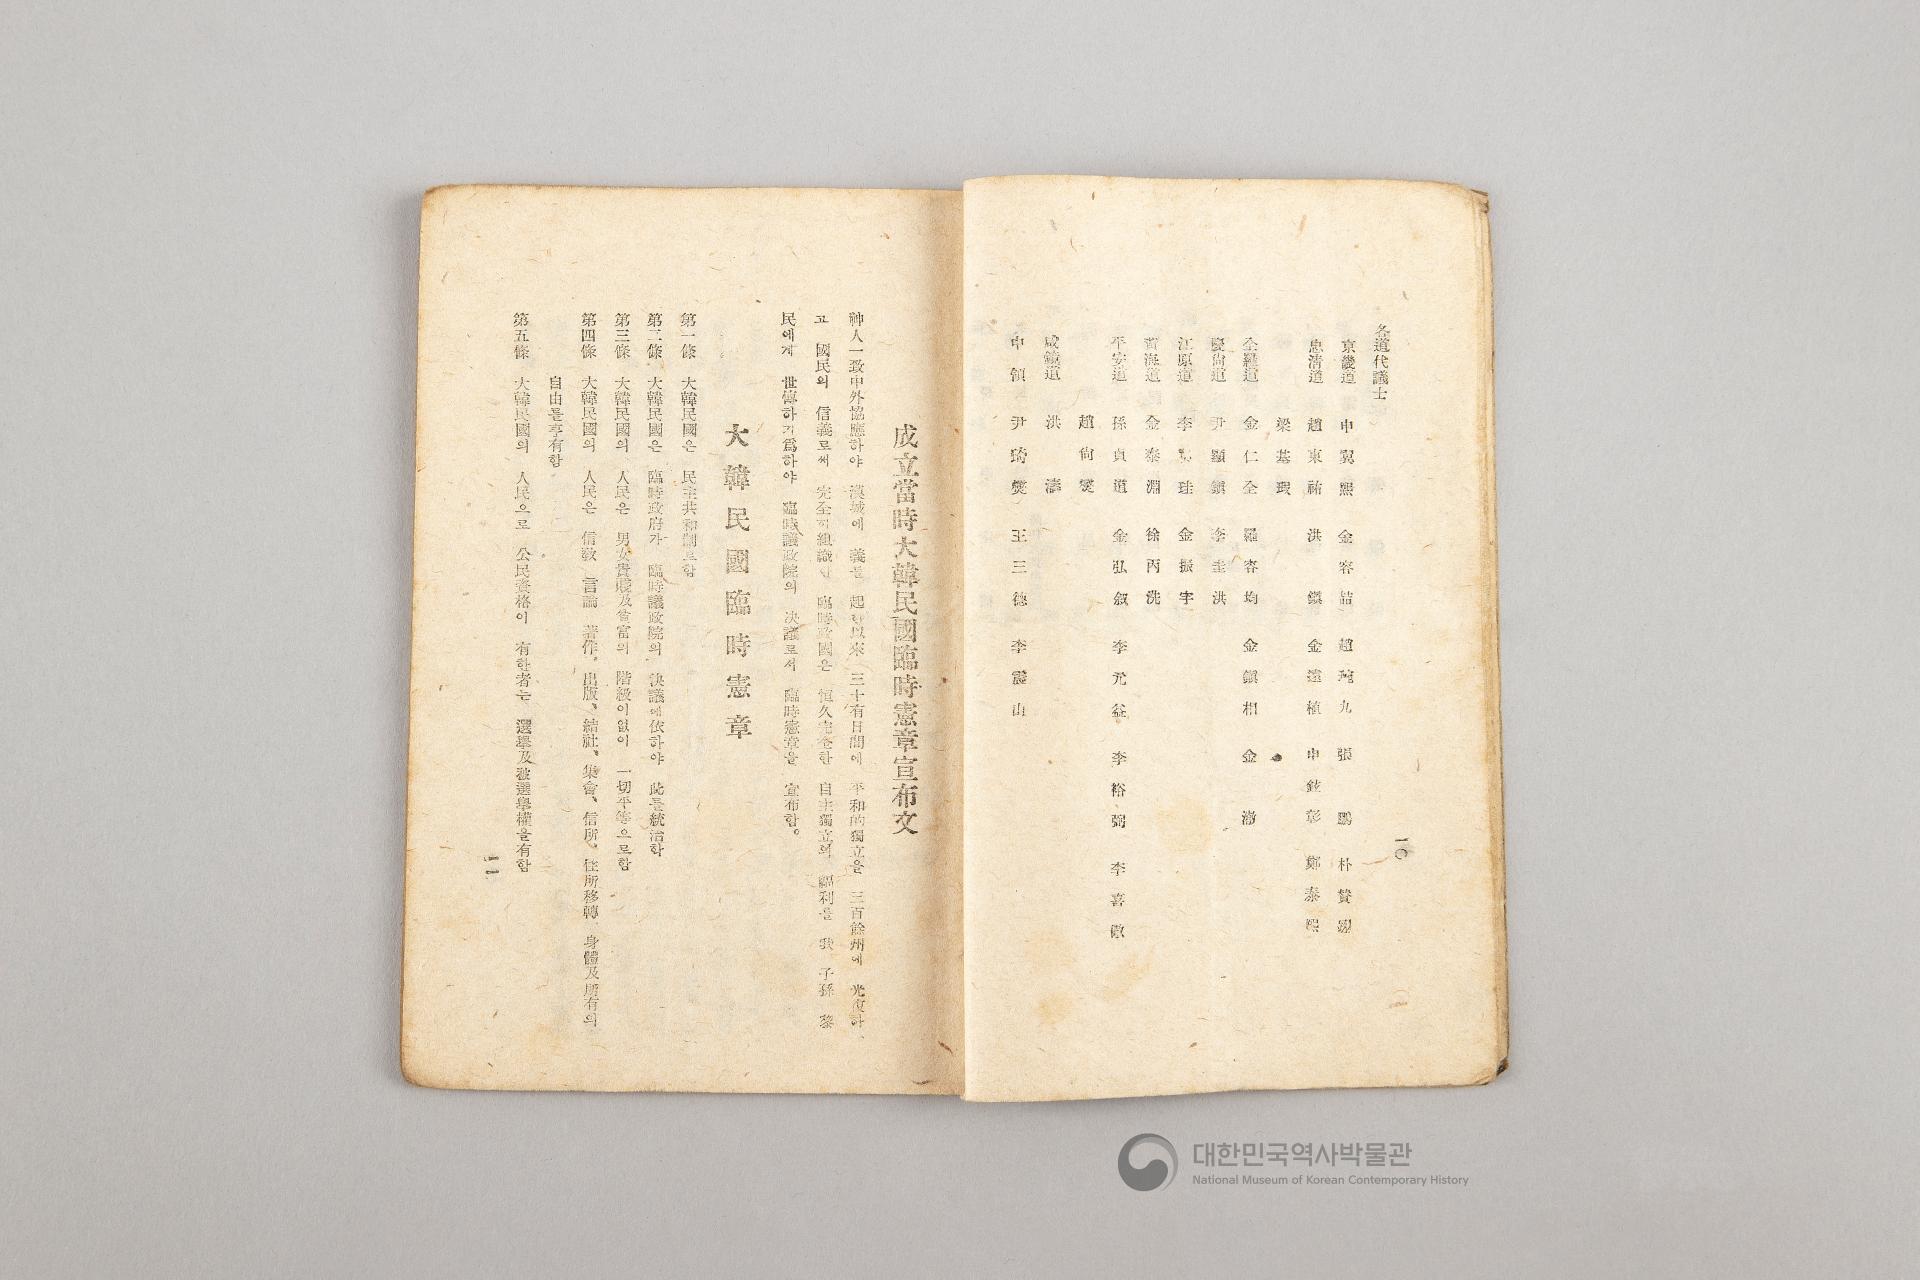 各道代議士
京畿道 申翼熙 金容喆 趙琬九 張鵬 朴贊翊
忠清道 趙東祐 洪鎭 金遠植 申鉉彰 鄭泰熙
梁基瑕
全羅道 金仁全 羅容均 金鎭相 金澈
慶尙道 尹顯鎭 李圭洪
江原道 李 珪 金振宇
黃海道 金泰淵 徐丙洗
平安道 孫貞道 金弘叙 李元益 李裕弼 李喜儆
趙尙燮
咸鏡道 洪濤
中領 尹琦燮 王三德 李震山
一〇
成立當時大韓民國臨時憲章宣布文
神人一致中外協應하야 漢城에 義를 起한以來 三十有日間에 平和的獨立을 三百餘州에 光復하
고 國民의 信義로써 完全히組織한 臨時政國은 恒久完全한 自主獨立의 福利를 我 子孫 黎
民에게 世傳하기爲하야 臨時議政院의 決議로써 臨時憲章을 宣布함。
大韓民國臨時憲章
第一條 大韓民國은 民主共和制로함
第二條 大韓民國은 臨時政府가 臨時議政院의 決議에依하야 此를統治함
第三條 大韓民國의 人民은 男女貴賤及貧富의 階級이없이 一切平等으로함
第四條 大韓民國의 人民은 信敎、言論、著作、出版、結社、集會、信所、住所移轉、身體及所有의
自由를享有함
第五條 大韓民國의 人民으로 公民資格이 有한者는 選擧及被選擧權을有함
一一
대한민국역사박물관
National Museum of Korean Contemporary History